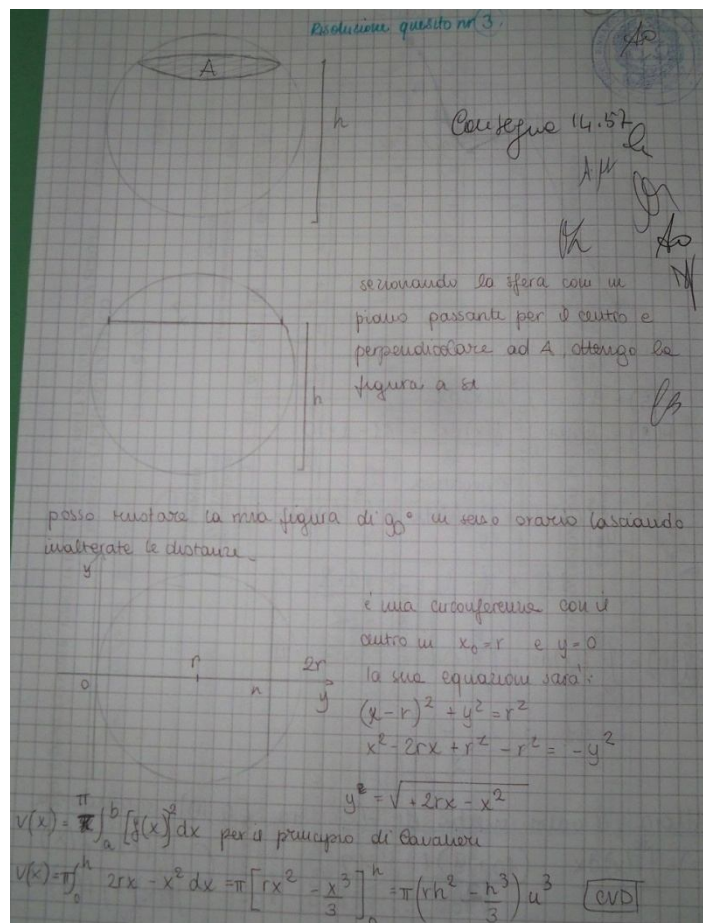 Risoluzione quesito nr 3.
A
h
Consegna 14.57
h
sezionando la sfera con un
piano passante per il centro e
perpendicolare ad A, ottengo la
figura a sx
posso ruotare la mia figura di 90° in senso orario lasciando
inalterate le distanze.
y
è una circonferenza con il
centro in x₀=r e y=0
r
2r
0
h
y
la sua equazione sarà:
(x-r)² + y² = r²
x² - 2rx + r² - r² = -y²
y² = √+2rx - x²
V(x) = π∫ₐᵇ [f(x)]² dx per il principio di Cavalieri
V(x) = π∫₀ʰ 2rx - x² dx = π[rx² - x³/3]₀ʰ = π(rh² - h³/3) u³ CVD